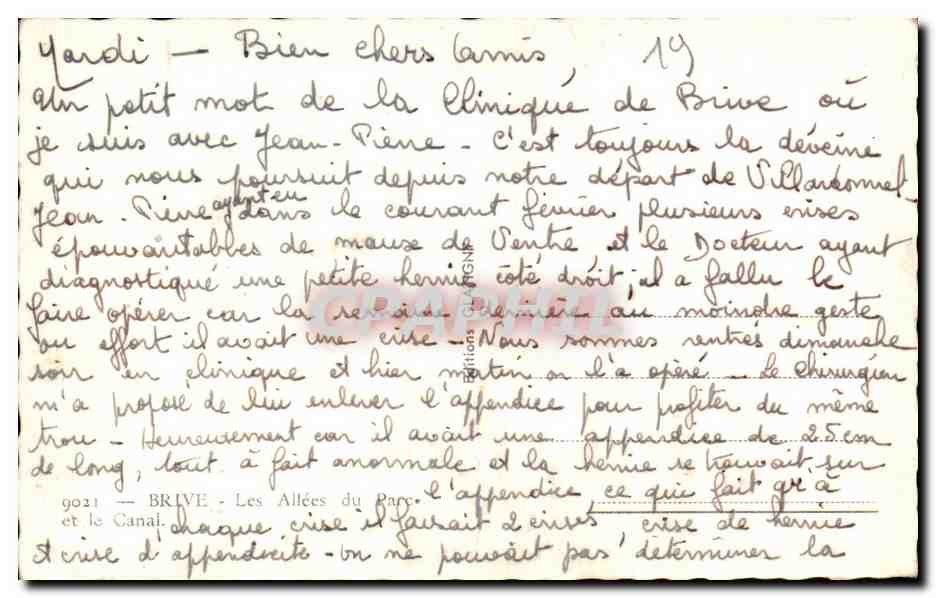 Mardi — Bien chers amis, 19
Un petit mot de la Clinique de Brive où
je suis avec Jean-Pierre - C'est toujours la déveine
qui nous poursuit depuis notre départ de Villardonnel
Jean-Pierre ayant eu dans le courant février plusieurs crises
épouvantables de maux de Ventre et le Docteur ayant
diagnostiqué une petite hernie côté droit, il a fallu le
faire opérer car la semaine dernière au moindre geste
ou effort il avait une crise - Nous sommes rentrés dimanche
soir en clinique et hier matin on l'a opéré - Le Chirurgien
m'a proposé de lui enlever l'appendice pour profiter du même
trou - Heureusement car il avait une appendice de 25 cm
de long, tout à fait anormale et la hernie se trouvait sur
l'appendice, ce qui fait qu'à
9021 — BRIVE - Les Allées du Parc
et le Canal.
chaque crise il faisait 2 crises, crise de hernie
et crise d'appendicite - on ne pouvait pas déterminer la
Editions GLATIGNY
CPARHIL